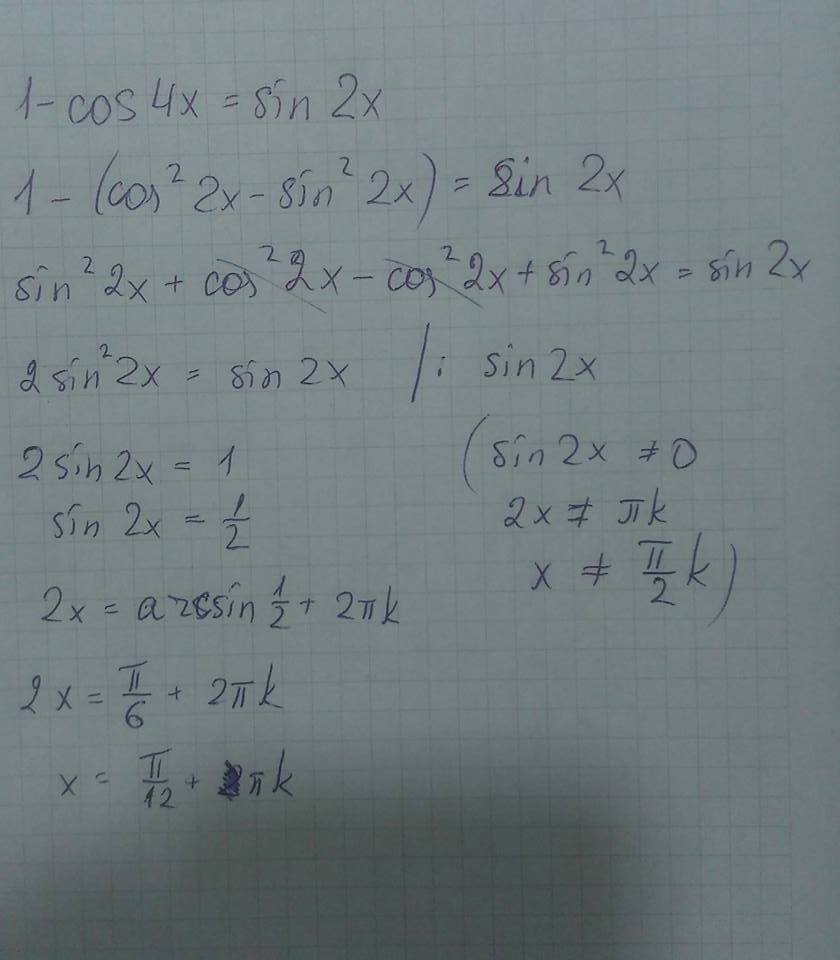 1 - cos 4x = sin 2x
1 - (cos² 2x - sin² 2x) = sin 2x
sin² 2x + cos² 2x - cos² 2x + sin² 2x = sin 2x
2 sin² 2x = sin 2x /: sin 2x
2 sin 2x = 1 (sin 2x ≠ 0
sin 2x = 1/2 2x ≠ πk
x ≠ π/2 k)
2x = arcsin 1/2 + 2πk
2x = π/6 + 2πk
x = π/12 + πk